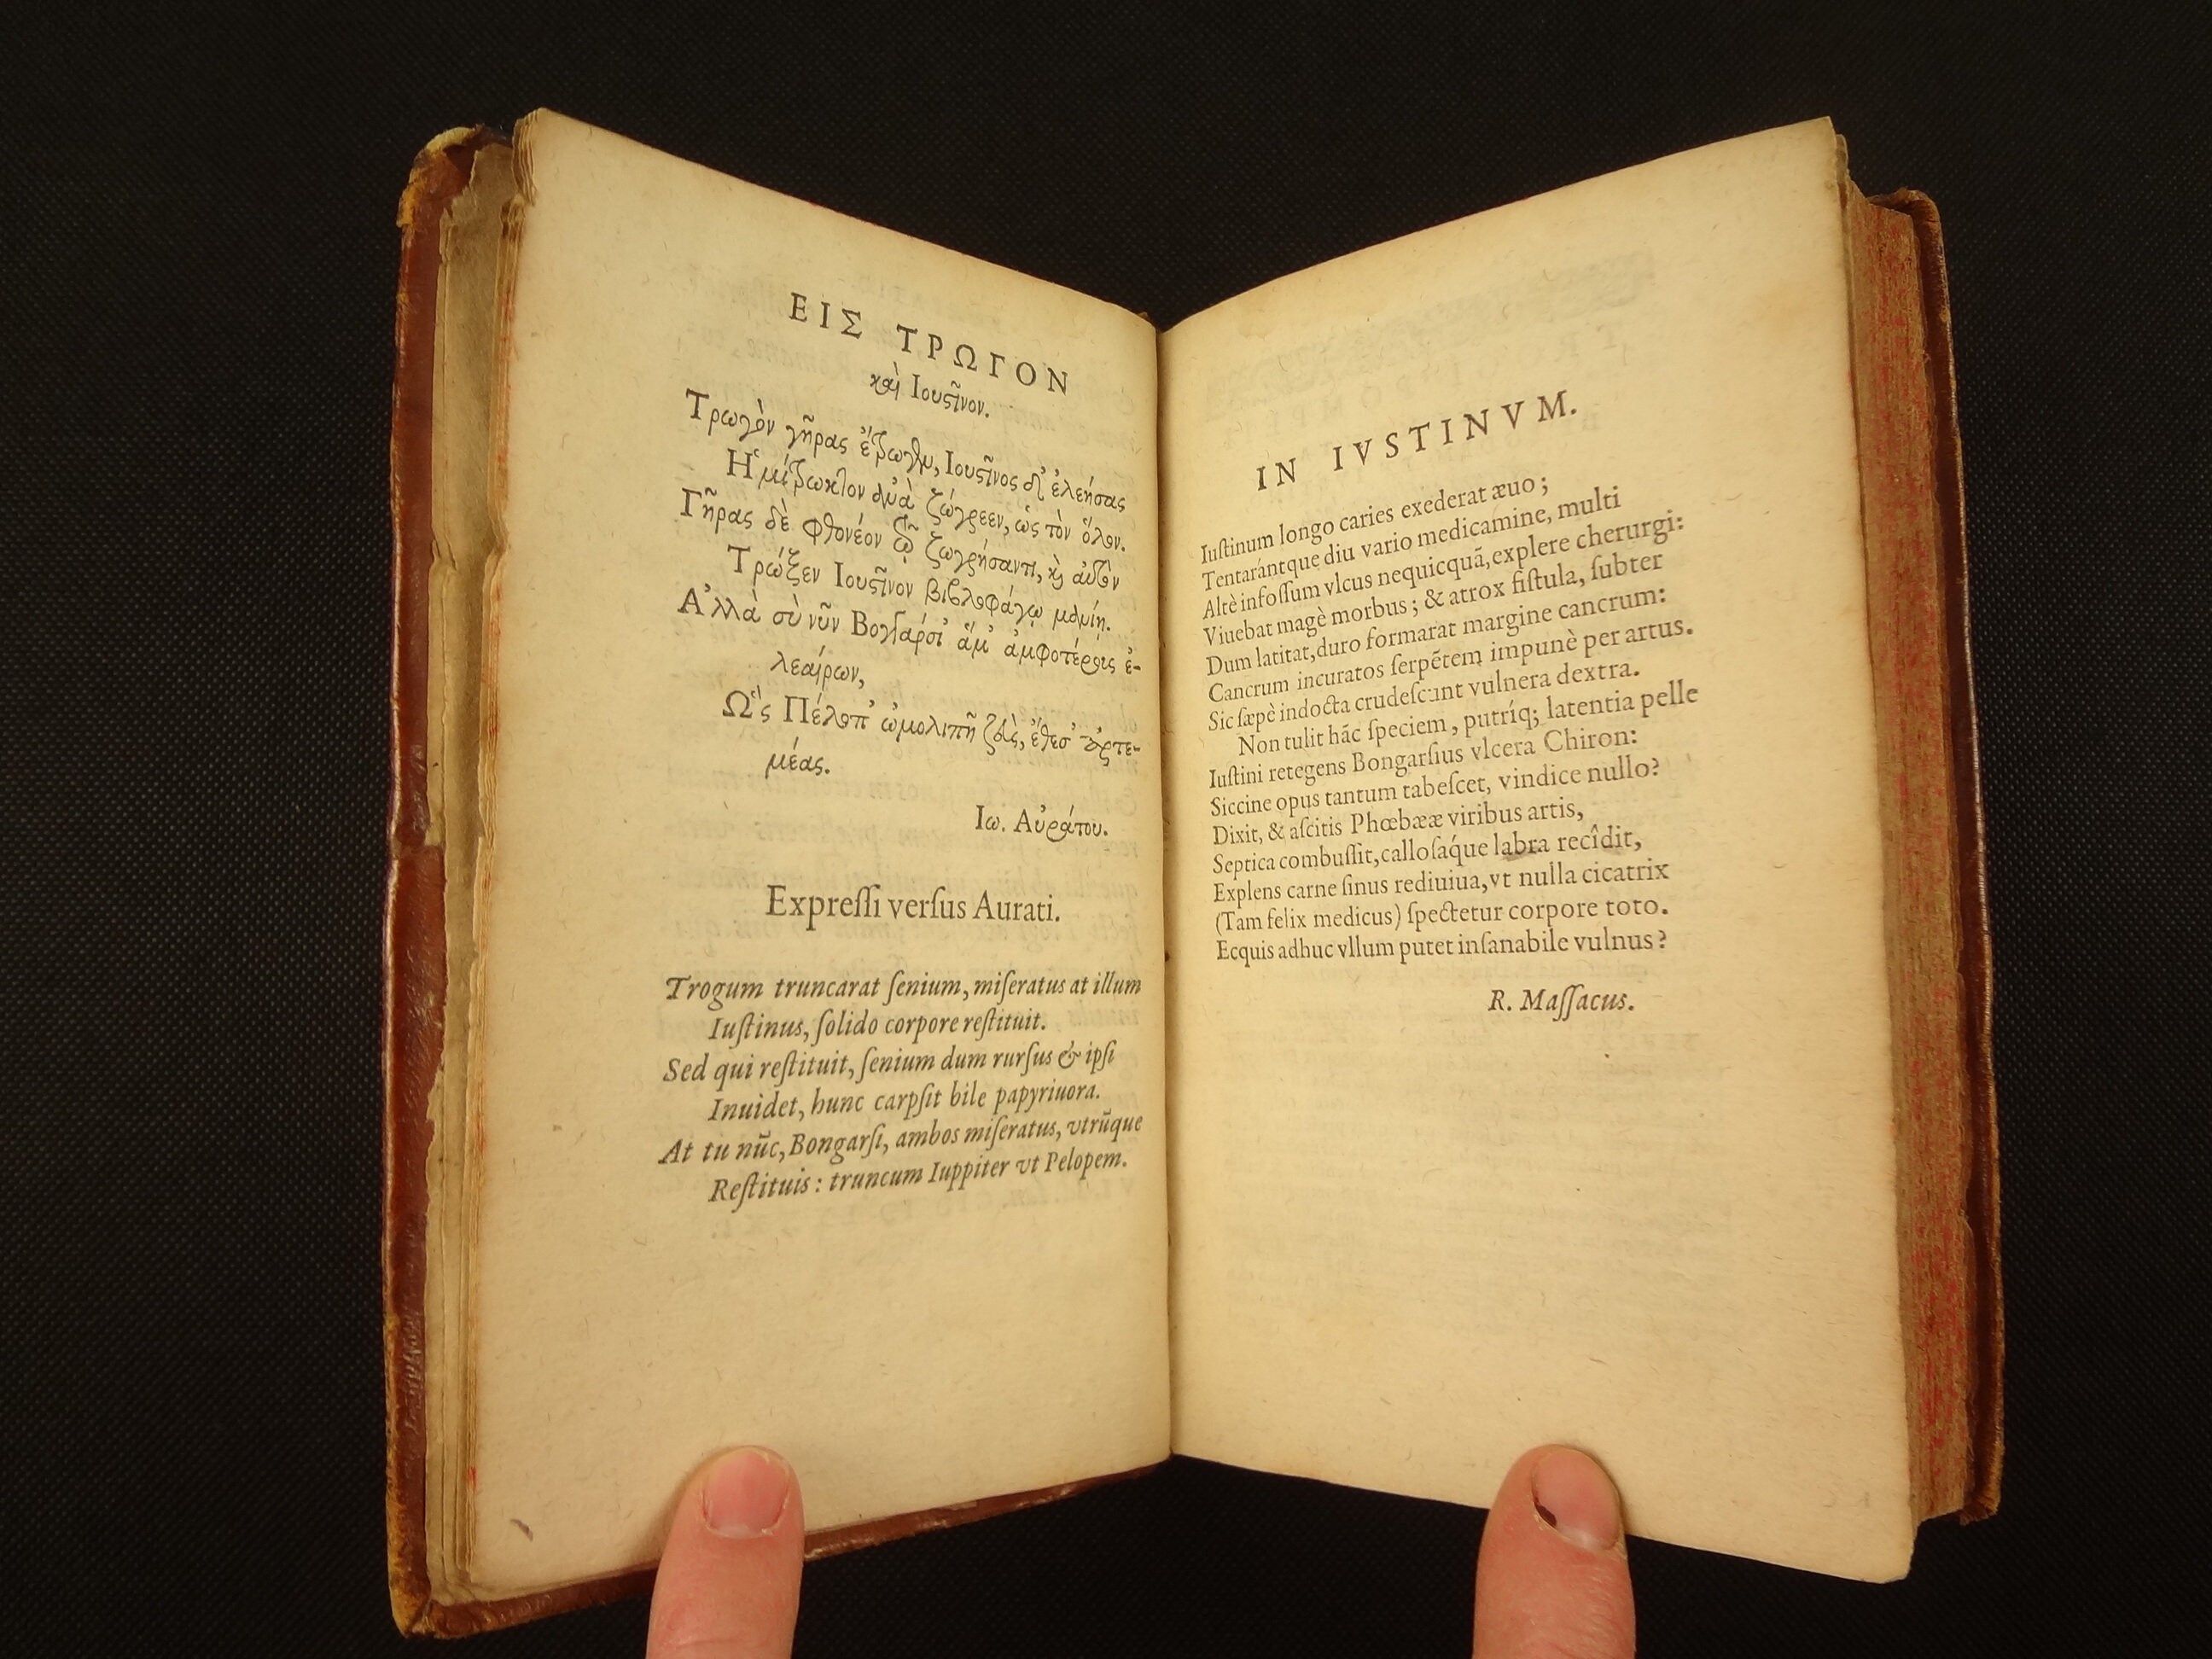 ΕΙΣ ΤΡΩΓΟΝ
καὶ Ιουστῖνον.
Τρωγὸν γῆρας ἔτρωγεν, Ιουστῖνος δ' ἐλεήσας
Ημίτρωκτον ζώγρεεν, ὡς τὸν ὅλον.
Γῆρας δὲ φθονέον τῷ ζωγρήσαντι, καὶ αὐτὸν
Τρώξεν Ιουστῖνον βιβλοφάγῳ μανίῃ.
Αλλὰ σὺ νῦν Βογγαρσί ἅμ' ἀμφοτέροις ἐ-
λεαίρων,
Ως Πέλοπ' ὠμολιπῆ ζεὺς, ἔθεσ' ἀρτε-
μέας.
Ιω. Αὐράτου.
Expreſſi verſus Aurati.
Trogum truncarat ſenium, miſeratus at illum
Iuſtinus, ſolido corpore reſtituit.
Sed qui reſtituit, ſenium dum rurſus & ipſi
Inuidet, hunc carpſit bile papyriuora.
At tu nūc, Bongarſi, ambos miſeratus, vtrūque
Reſtituis: truncum Iuppiter vt Pelopem.
IN IVSTINVM.
Iuſtinum longo caries exederat æuo;
Tentarántque diu vario medicamine, multi
Altè infoſſum vlcus nequicquā, explere cherurgi:
Viuebat magè morbus; & atrox fiſtula, ſubter
Dum latitat, duro formarat margine cancrum:
Cancrum incuratos ſerpētem impunè per artus.
Sic ſæpè indocta crudeſcunt vulnera dextra.
Non tulit hāc ſpeciem, putríq; latentia pelle
Iuſtini retegens Bongarſius vlcera Chiron:
Siccine opus tantum tabeſcet, vindice nullo?
Dixit, & aſcitis Phœbææ viribus artis,
Septica combuſſit, calloſáque labra recîdit,
Explens carne ſinus rediuiua, vt nulla cicatrix
(Tam felix medicus) ſpectetur corpore toto.
Ecquis adhuc vllum putet inſanabile vulnus?
R. Maſſacus.